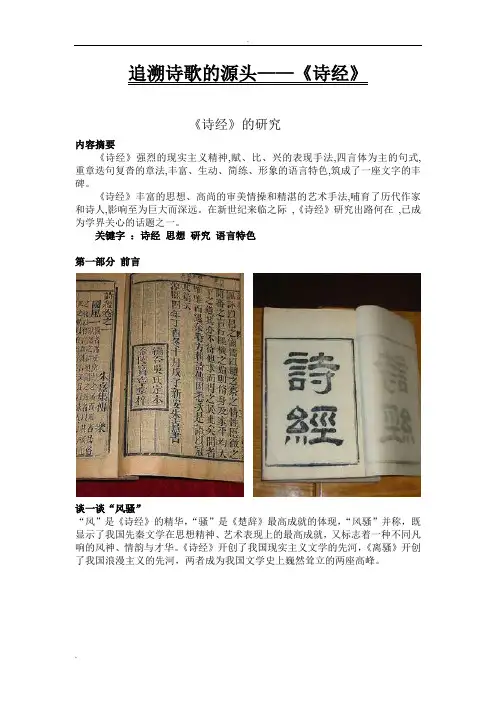 追溯诗歌的源头——《诗经》
《诗经》的研究
内容摘要
《诗经》强烈的现实主义精神,赋、比、兴的表现手法,四言体为主的句式,
重章迭句复沓的章法,丰富、生动、简练、形象的语言特色,筑成了一座文字的丰
碑。
《诗经》丰富的思想、高尚的审美情操和精湛的艺术手法,哺育了历代作家
和诗人,影响至为巨大而深远。在新世纪来临之际 ,《诗经》研究出路何在 ,已成
为学界关心的话题之一。
关键字 ：诗经 思想 研究 语言特色
第一部分 前言
淳熙四年丁酉冬十月戊子新安朱熹書
國風一
朱熹集傳
詩經
谈一谈“风骚”
“风”是《诗经》的精华，“骚”是《楚辞》最高成就的体现，“风骚”并称，既
显示了我国先秦文学在思想精神、艺术表现上的最高成就，又标志着一种不同凡
响的风神、情韵与才华。《诗经》开创了我国现实主义文学的先河，《离骚》开创
了我国浪漫主义的先河，两者成为我国文学史上巍然耸立的两座高峰。